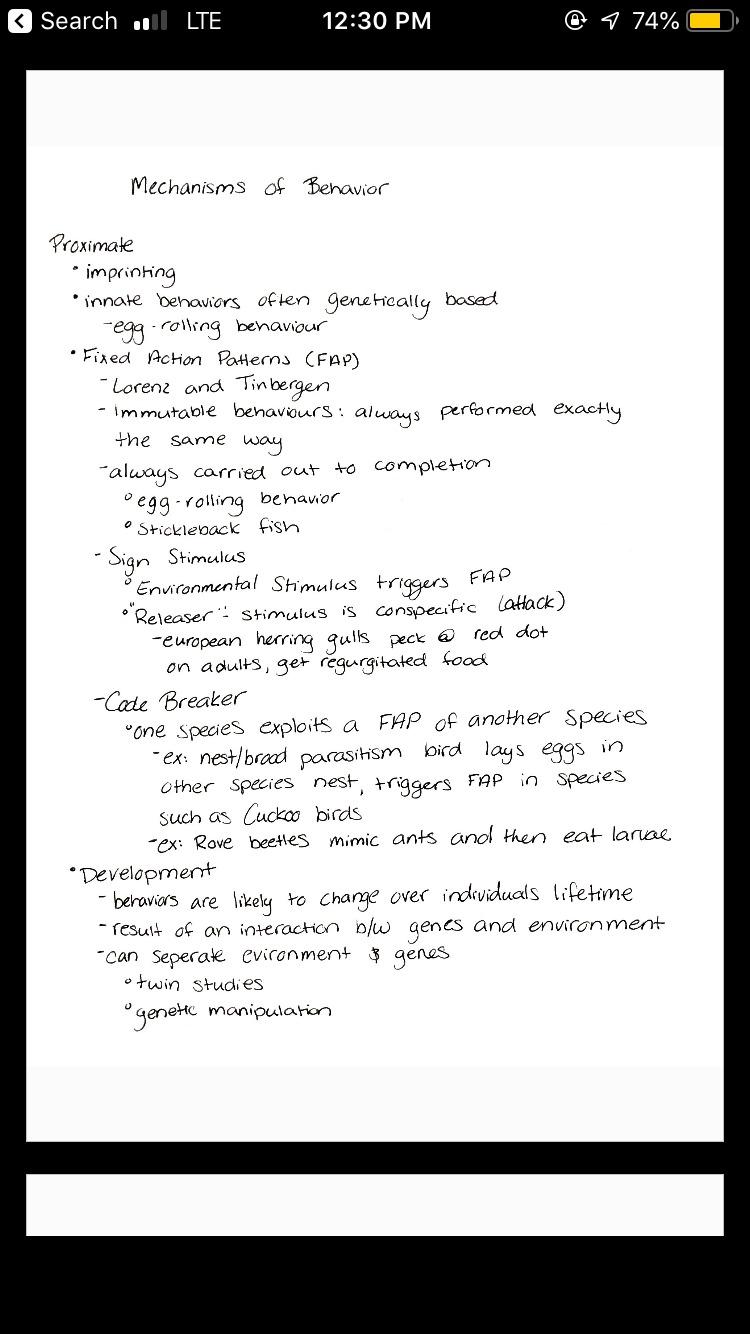 Search LTE 12:30 PM 74%
Mechanisms of Behavior
Proximate
• imprinting
• innate behaviors often genetically based
- egg-rolling behaviour
• Fixed Action Patterns (FAP)
- Lorenz and Tinbergen
- immutable behaviours: always performed exactly
the same way
- always carried out to completion
° egg-rolling behavior
° Stickleback fish
- Sign Stimulus
° Environmental Stimulus triggers FAP
° "Releaser": stimulus is conspecific (attack)
- european herring gulls peck @ red dot
on adults, get regurgitated food
- Code Breaker
° one species exploits a FAP of another species
- ex: nest/brood parasitism bird lays eggs in
other species nest, triggers FAP in species
such as Cuckoo birds
- ex: Rove beetles mimic ants and then eat larvae
• Development
- behaviors are likely to change over individuals lifetime
- result of an interaction b/w genes and environment
- can seperate evironment & genes
° twin studies
° genetic manipulation